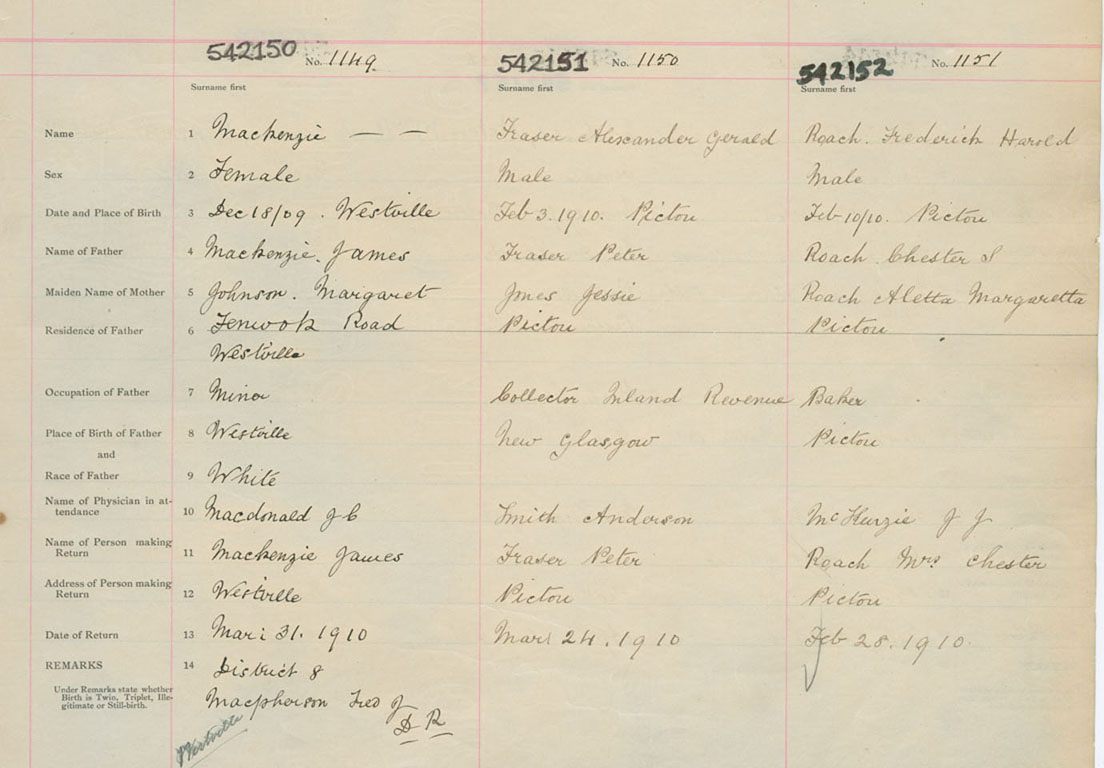 542150 No. 1149 542151 No. 1150 542152 No. 1151
Surname first Surname first Surname first
Name 1 Mackenzie — — Fraser Alexander Gerald Roach. Frederick Harold
Sex 2 Female Male Male
Date and Place of Birth 3 Dec 18/09. Westville Feb 3. 1910. Pictou Feb 10/10. Pictou
Name of Father 4 Mackenzie. James Fraser Peter Roach Chester S
Maiden Name of Mother 5 Johnson. Margaret Jones Jessie Roach Aletta Margaretta
Residence of Father 6 Road Pictou Pictou
Westville
Occupation of Father 7 Collector Inland Revenue Baker
Place of Birth of Father 8 Westville New Glasgow Pictou
and
Race of Father 9 White
Name of Physician in at-
tendance 10 Macdonald J C Smith Anderson McKenzie J J
Name of Person making
Return 11 Mackenzie James Fraser Peter Roach Mrs Chester
Address of Person making
Return 12 Westville Pictou Pictou
Date of Return 13 Mar: 31. 1910 Mar 24. 1910 Feb 28. 1910.
REMARKS 14 District 8
Under Remarks state whether
Birth is Twin, Triplet, Ille-
gitimate or Still-birth.
Macpherson Fred J
D R
Westville